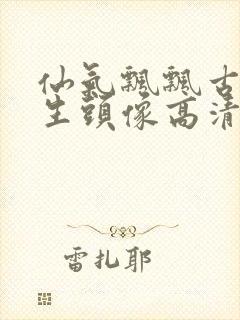 仙氣飄飄古
生頭像高清
雷扎耶